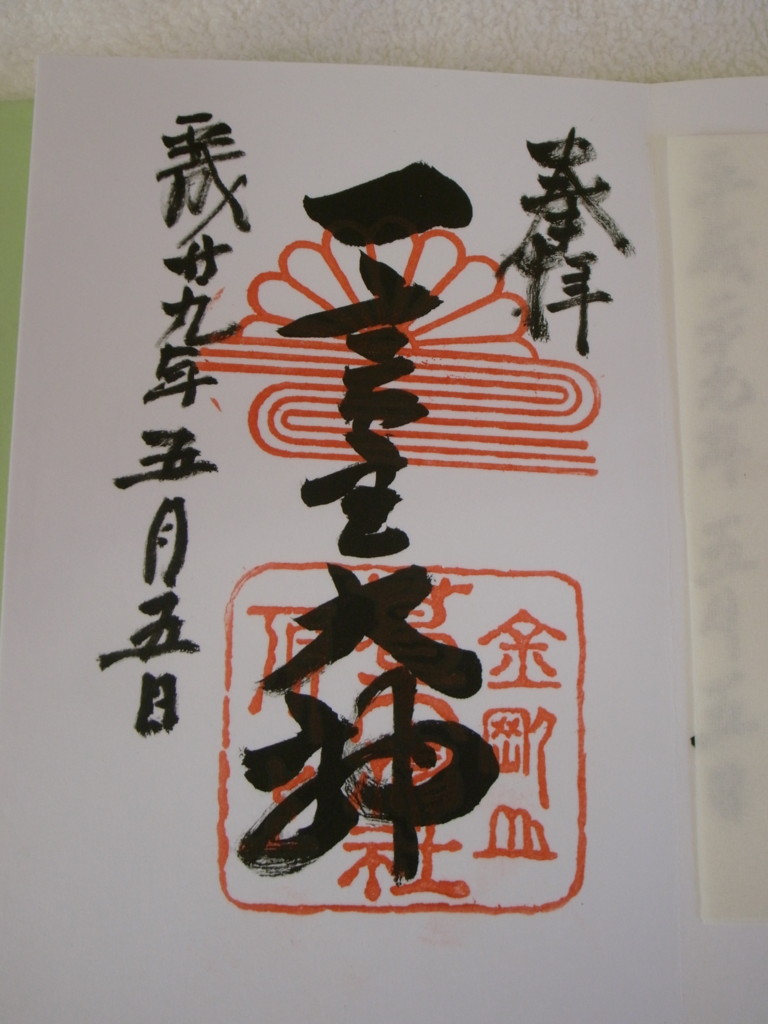 奉拝
一言主大神
平成廿九年五月五日
金剛山
葛木神社